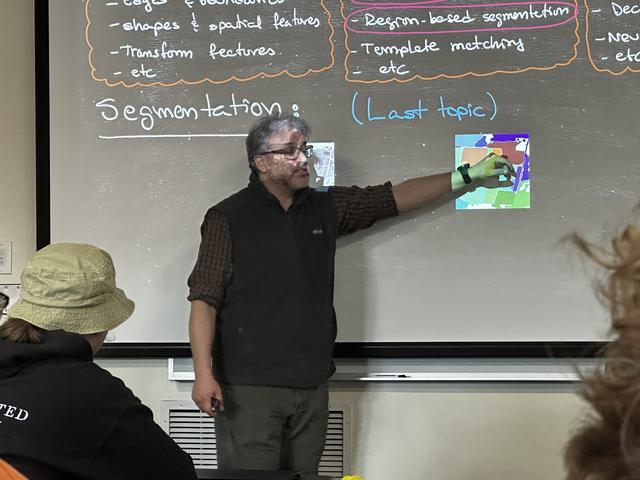 - shapes & spatial features
- Transform features.
- etc
- Region-based segmentation
- Template matching
- etc
Segmentation:
(Last topic)